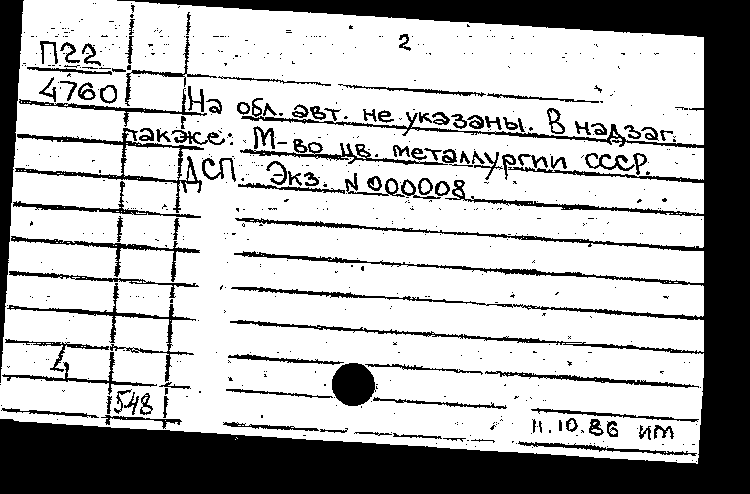 2
П22
4760
На обл. авт. не указаны. В надзаг.
также: М-во цв. металлургии СССР.
ДСП. Экз. N 000008.
4
548
11.10.86 ИМ